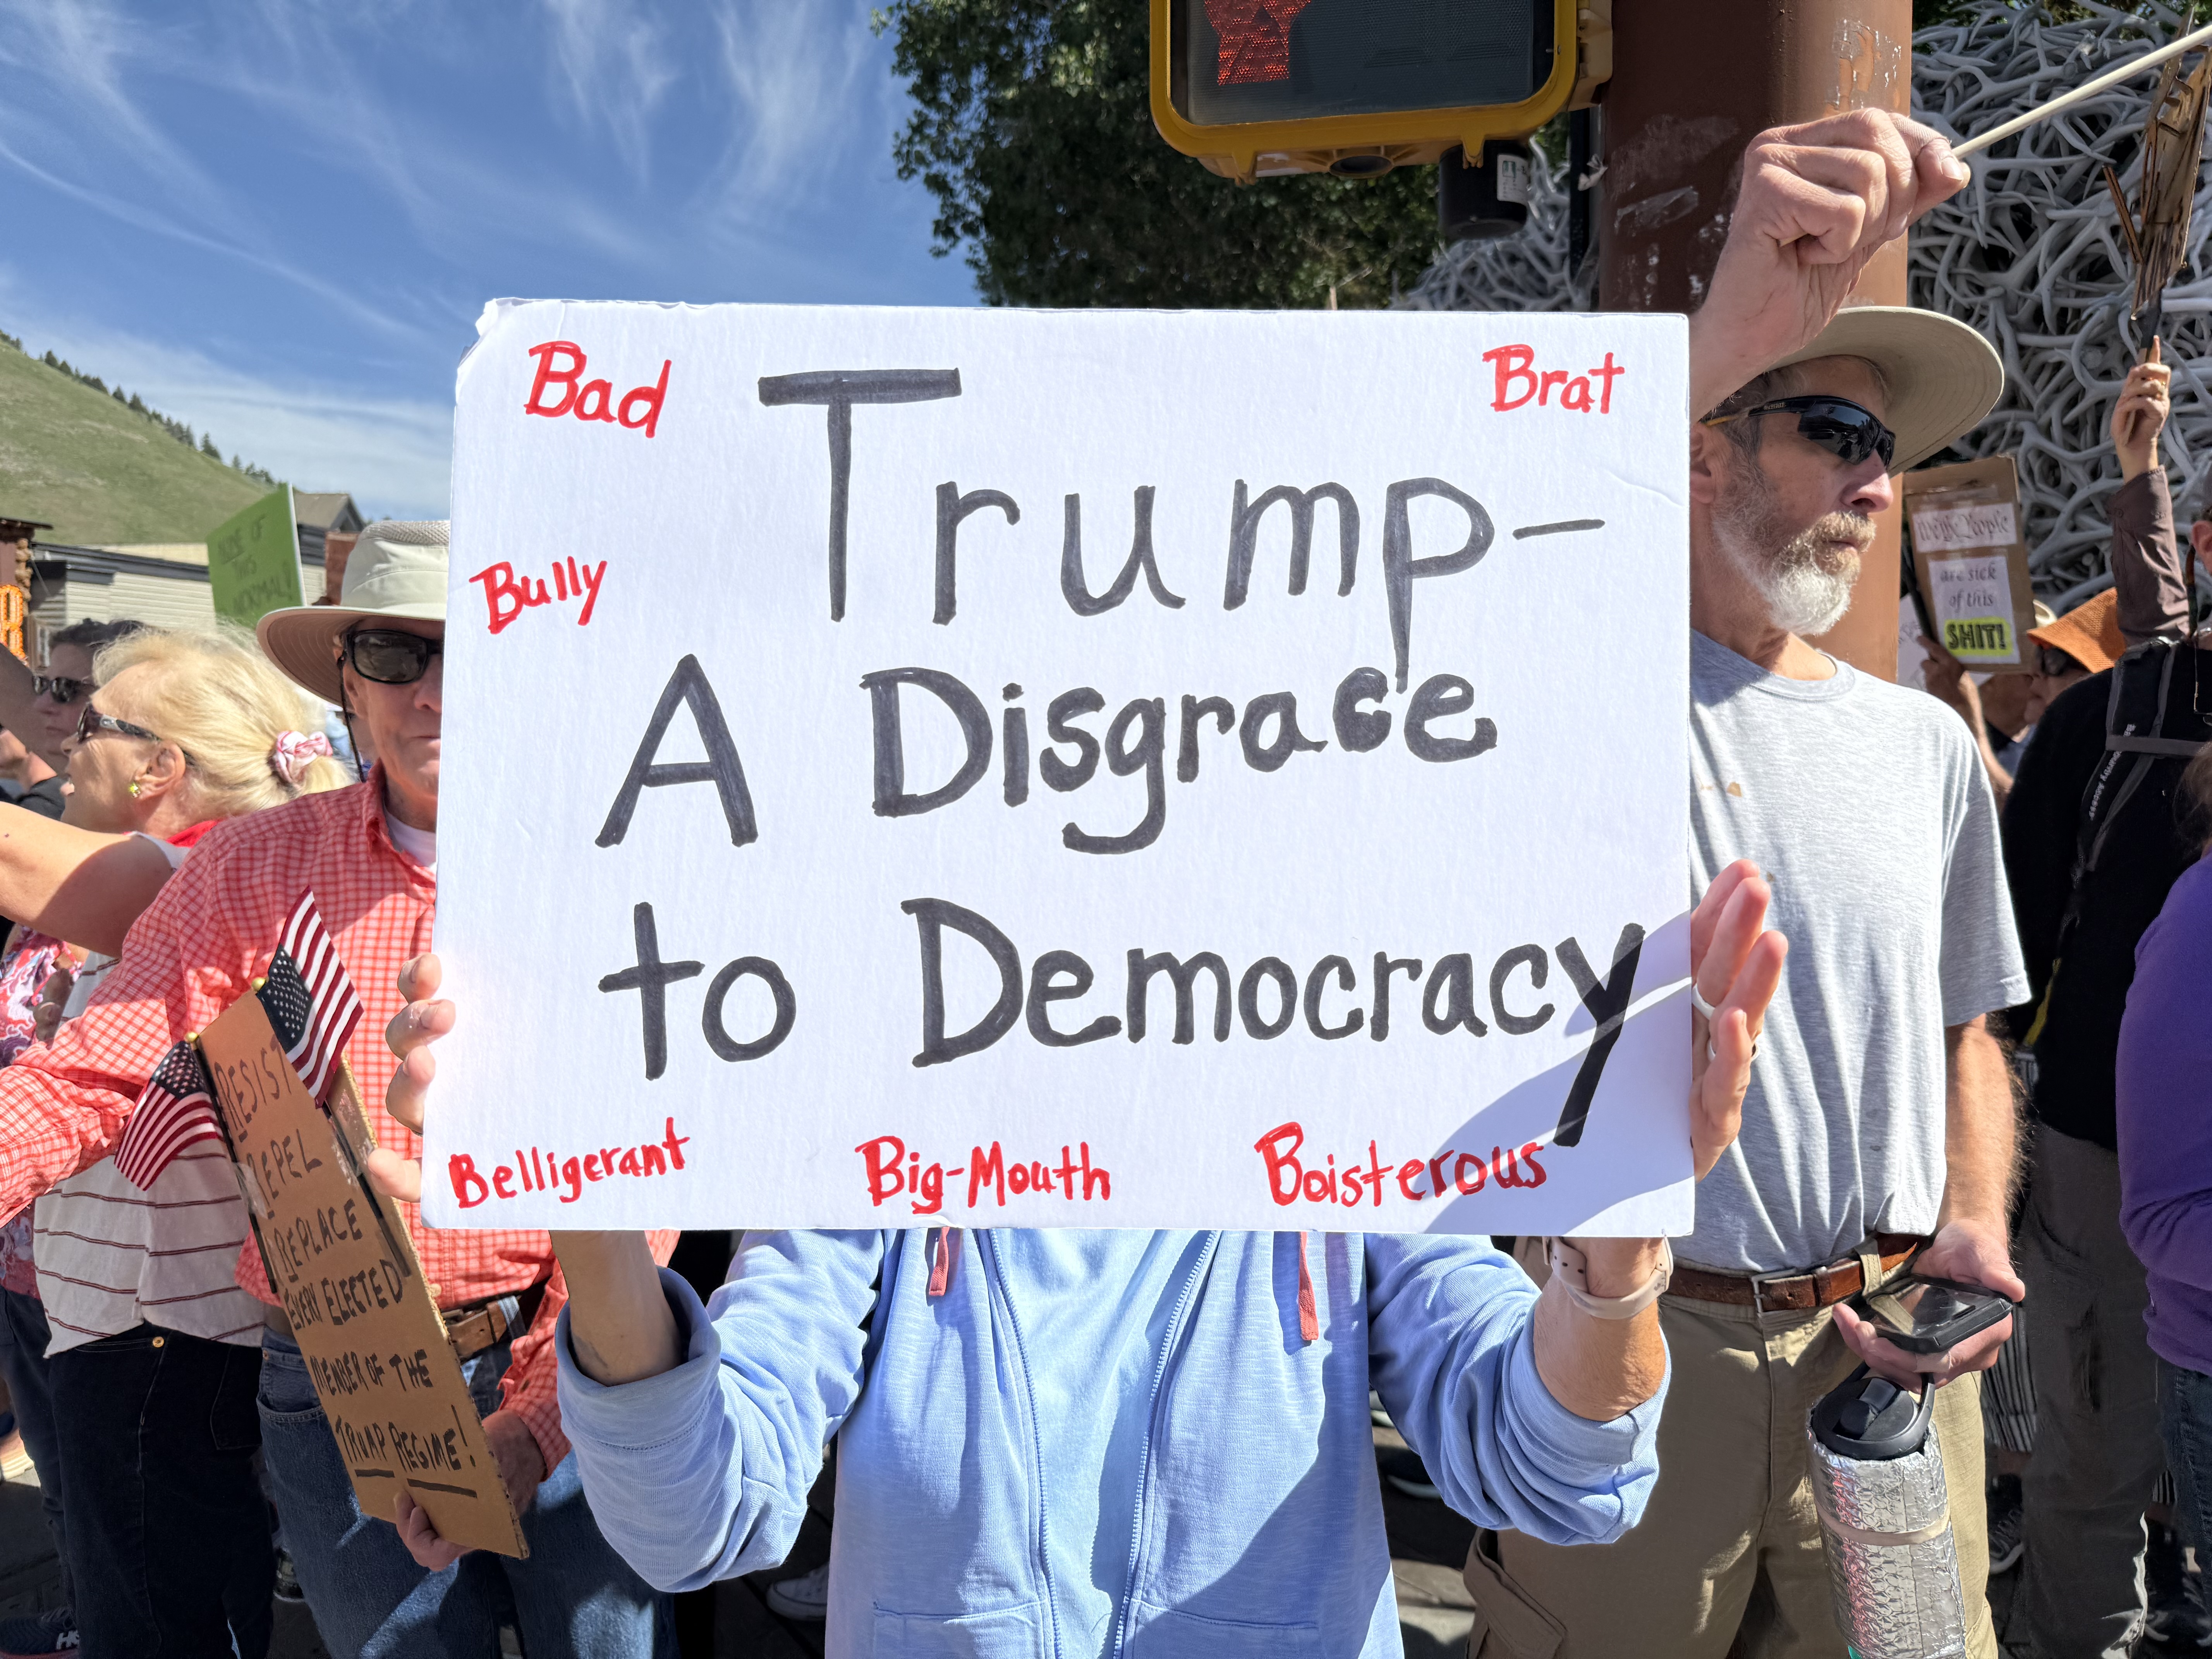 Bad
Brat
Trump-
Bully
A Disgrace
to Democracy
Belligerant
Big-Mouth
Boisterous
RESIST
REPEL
REPLACE
EVERY ELECTED
MEMBER OF THE
TRUMP REGIME!
OF
THIS
NORMAL!
We the People
are sick
of this
SHIT!